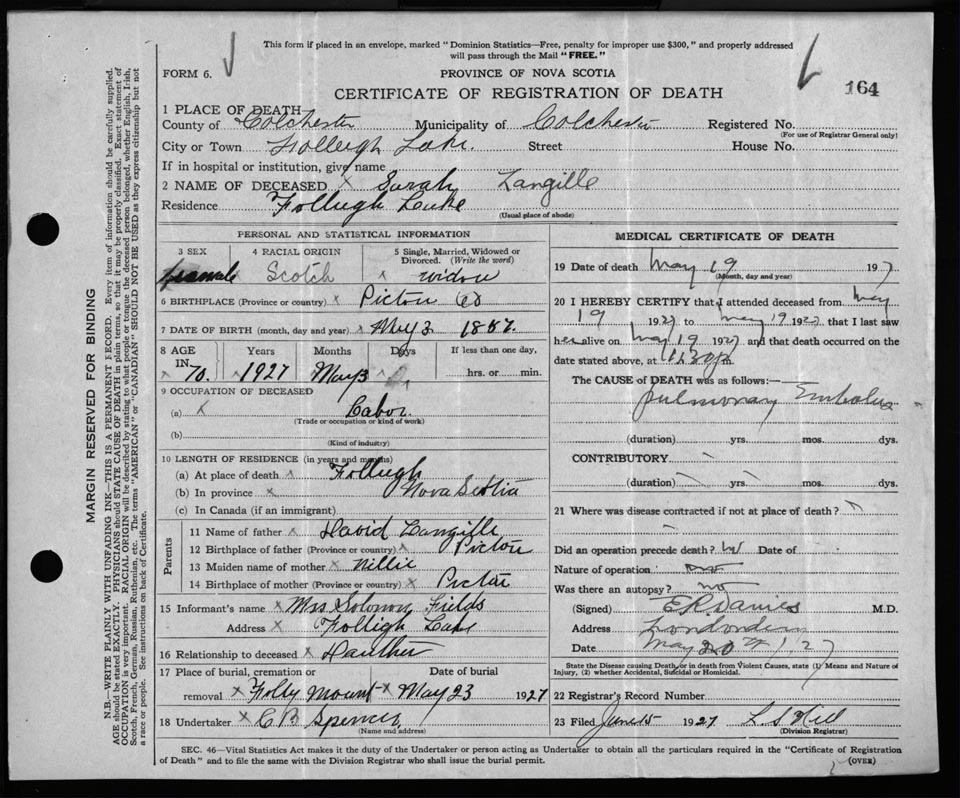 This form if placed in an envelope, marked "Dominion Statistics—Free, penalty for improper use $300," and properly addressed
will pass through the Mail "FREE."
FORM 6.
PROVINCE OF NOVA SCOTIA
164
CERTIFICATE OF REGISTRATION OF DEATH
1 PLACE OF DEATH—
County of Colchester Municipality of Colchester Registered No.
(For use of Registrar General only)
City or Town Folleigh Lake Street House No.
If in hospital or institution, give name
2 NAME OF DECEASED x Sarah Langille
Residence Folleigh Lake
(Usual place of abode)
PERSONAL AND STATISTICAL INFORMATION
3 SEX 4 RACIAL ORIGIN 5 Single, Married, Widowed or
Divorced. (Write the word)
Female Scotch x widow
6 BIRTHPLACE (Province or country) x Pictou Co
7 DATE OF BIRTH (month, day and year) x May 3 1857.
8 AGE Years Months Days If less than one day,
IN 70. x 1927 May 3 hrs. or min.
9 OCCUPATION OF DECEASED
(a) x Labor.
(Trade or occupation or kind of work)
(b)
(Kind of industry)
10 LENGTH OF RESIDENCE (in years and months)
(a) At place of death x Folleigh
(b) In province x Nova Scotia
(c) In Canada (if an immigrant)
Parents
11 Name of father x David Langille
12 Birthplace of father (Province or country) x Pictou
13 Maiden name of mother x Nillie
14 Birthplace of mother (Province or country) x Pictou
15 Informant's name x Mrs Solomon Fields
Address x Folligh Lake
16 Relationship to deceased x Dauther
17 Place of burial, cremation or Date of burial
removal x Folly Mount x May 23 1927
18 Undertaker x C B Spencer
(Name and address)
MEDICAL CERTIFICATE OF DEATH
19 Date of death May 19 1927
(Month, day and year)
20 I HEREBY CERTIFY that I attended deceased from May
19 1927 to May 19 1927, that I last saw
her alive on May 19 1927 and that death occurred on the
date stated above, at 11.30 p m.
The CAUSE OF DEATH was as follows:—
Pulmonary Embolus
(duration) yrs. mos. dys.
CONTRIBUTORY
(duration) yrs. mos. dys.
21 Where was disease contracted if not at place of death?
Did an operation precede death? no Date of
Nature of operation
Was there an autopsy? no
(Signed) E.R. Davies M.D.
Address Londonderry
Date May 20th 1927
State the Disease causing Death, or in death from Violent Causes, state (1) Means and Nature of
Injury, (2) whether Accidental, Suicidal or Homicidal.
22 Registrar's Record Number
23 Filed June 15 1927 L S Hill
(Division Registrar)
SEC. 46—Vital Statistics Act makes it the duty of the Undertaker or person acting as Undertaker to obtain all the particulars required in the "Certificate of Registration
of Death" and to file the same with the Division Registrar who shall issue the burial permit.
(OVER)
MARGIN RESERVED FOR BINDING
N.B.—WRITE PLAINLY WITH UNFADING INK—THIS IS A PERMANENT RECORD. Every item of information should be carefully supplied.
AGE should be stated EXACTLY. PHYSICIANS should STATE CAUSE OF DEATH in plain terms, so that it may be properly classified. Exact statement of
OCCUPATION is very important. RACIAL ORIGIN will be described by stating to what people or tongue the deceased person belonged, whether English, Irish,
Scotch, French, German, Russian, Ruthenian, etc. The terms "AMERICAN" or "CANADIAN" SHOULD NOT BE USED as they express citizenship but not
a race or people. See instructions on back of Certificate.